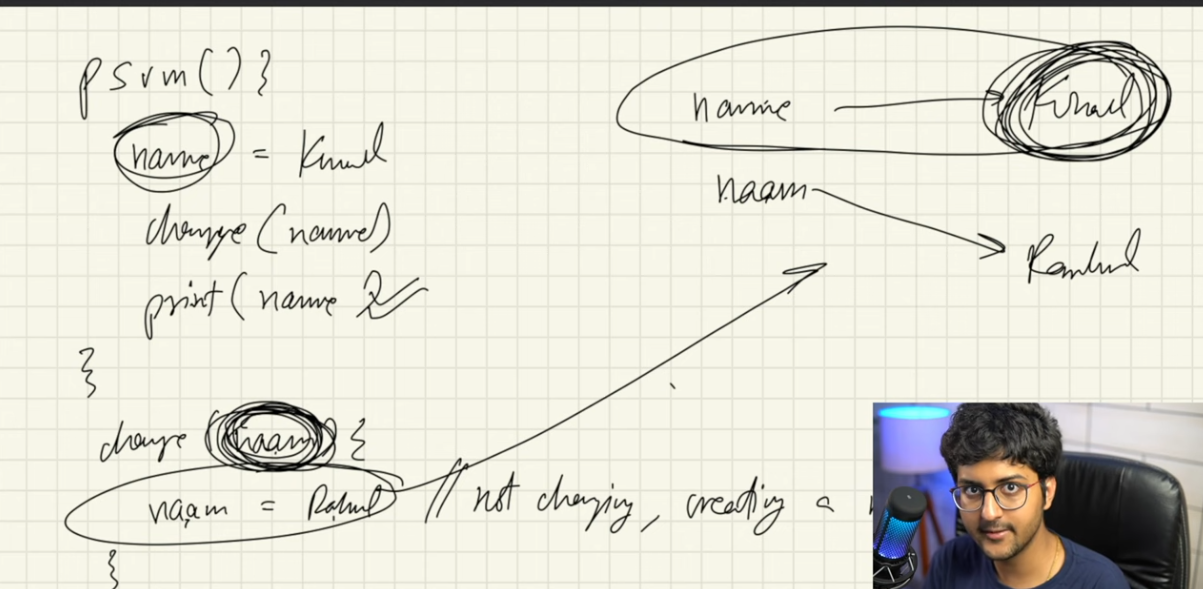 psvm() {
name = Kunal
change (name)
print (name)
}
change (naam) {
naam = Rahul // not changing, creating a
}
name Kunal
naam Rahul